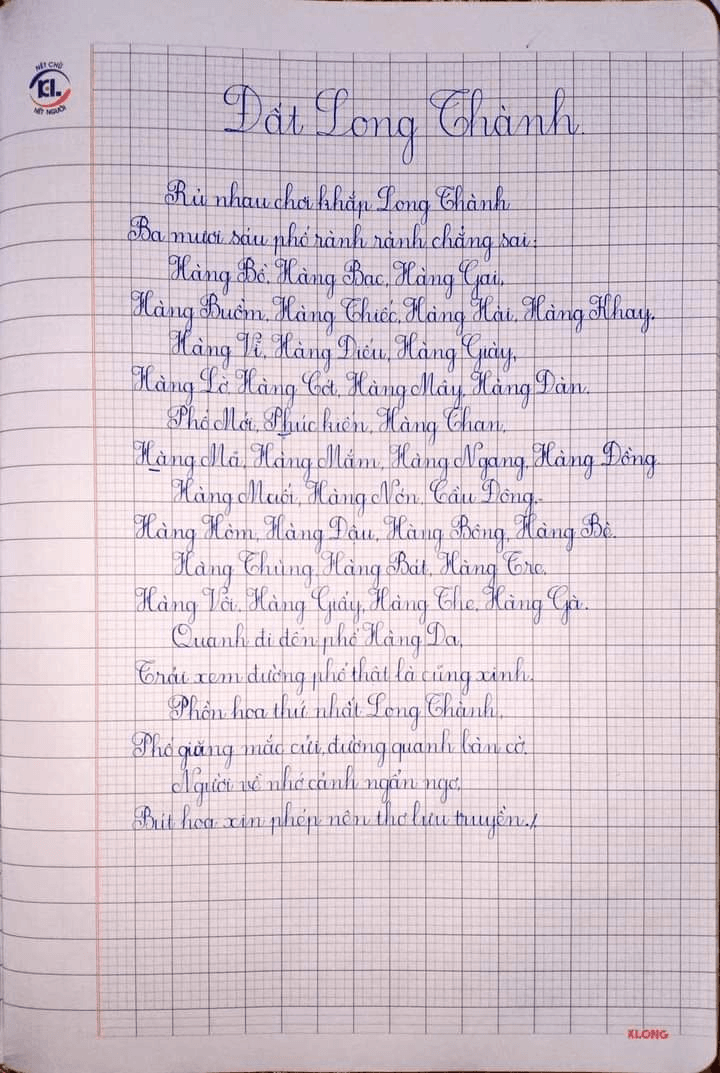 NÉT CHỮ
KL
NẾT NGƯỜI
Đất Long Thành
Rủ nhau chơi khắp Long Thành
Ba mươi sáu phố rành rành chẳng sai:
Hàng Bồ, Hàng Bạc, Hàng Gai,
Hàng Buồm, Hàng Thiếc, Hàng Hài, Hàng Khay.
Hàng Vĩ, Hàng Điếu, Hàng Giày,
Hàng Lờ, Hàng Cót, Hàng Mây, Hàng Đàn.
Phố Mới, Phúc kiến, Hàng Than,
Hàng Mã, Hàng Mắm, Hàng Ngang, Hàng Đồng.
Hàng Muối, Hàng Nón, Cầu Đông,
Hàng Hòm, Hàng Đậu, Hàng Bông, Hàng Bè.
Hàng Thùng, Hàng Bát, Hàng Tre,
Hàng Vôi, Hàng Giấy, Hàng The, Hàng Gà.
Quanh đi đến phố Hàng Da,
Trải xem đường phố thật là cũng xinh.
Phồn hoa thứ nhất Long Thành,
Phố giăng mắc cửi, đường quanh bàn cờ.
Người về nhớ cảnh ngẩn ngơ,
Bút hoa xin phép nên thơ lưu truyền./.
KLONG